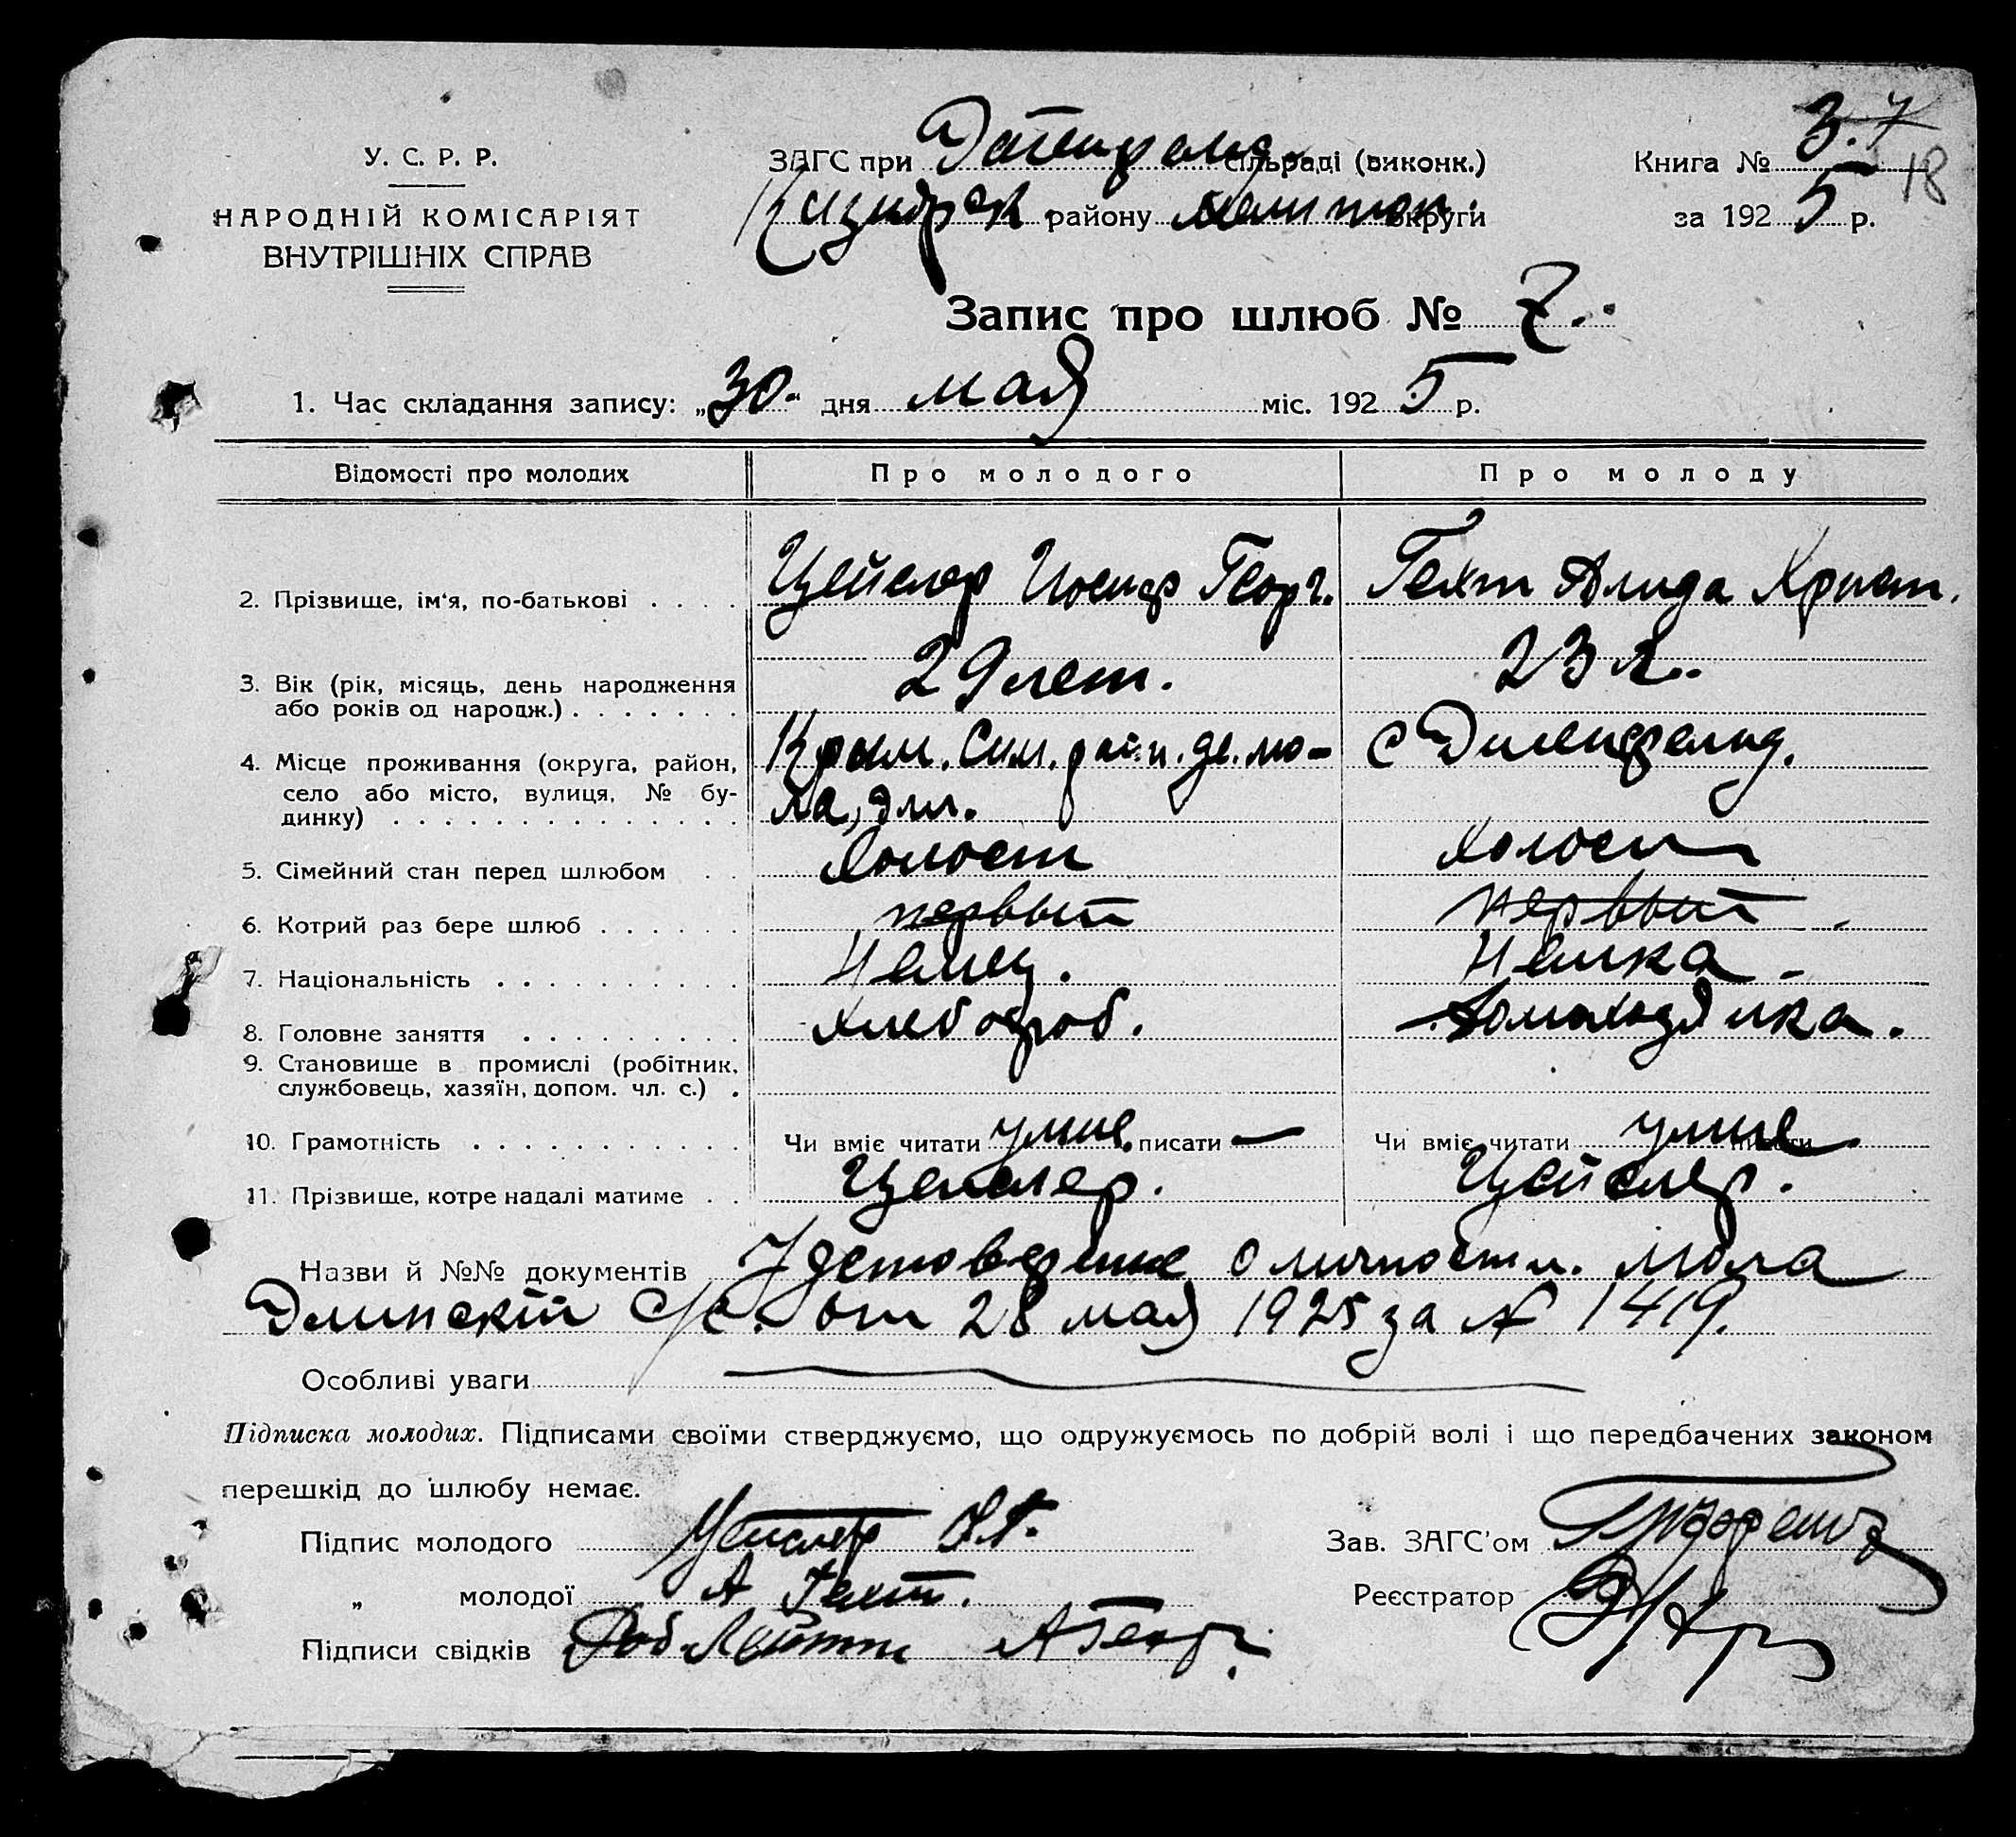 У. С. Р. Р.
НАРОДНІЙ КОМІСАРІЯТ
ВНУТРІШНІХ СПРАВ
ЗАГС при сільраді (виконк.)
району округи
Книга № 3.
18
за 1925 р.
Запис про шлюб № 7.
1. Час складання запису: „30“ дня мая міс. 1925 р.
Відомості про молодих Про молодого Про молоду
2. Прізвище, ім'я, по-батькові . . . . Цейслер Иосиф Георг. Гехт Алида Христ.
3. Вік (рік, місяць, день народження 29 лет. 23 л.
або років од народж.) . . . . . . .
4. Місце проживання (округа, район, Крым. Сим. район. де. мо- с
село або місто, вулиця, № бу- ла,
динку) . . . . . . . . . . . . . .
5. Сімейний стан перед шлюбом . . Холост холост
6. Котрий раз бере шлюб . . . . . . первый первый
7. Національність . . . . . . . . . . Немец. Немка
8. Головне заняття . . . . . . . . . хлебороб. домохозяйка.
9. Становище в промислі (робітник,
службовець, хазяїн, допом. чл. с.) .
10. Грамотність . . . . . . . . . . . Чи вміє читати умие писати — Чи вміє читати умие писати
11. Прізвище, котре надалі матиме . . Цейслер. Цейслер.
Назви й №№ документів о личности.
от 28 мая 1925 за № 1419.
Особливі уваги
Підписка молодих. Підписами своїми стверджуємо, що одружуємось по добрій волі і що передбачених законом
перешкід до шлюбу немає.
Підпис молодого Цейслер Зав. ЗАГС'ом
„ молодої А Гехт. Реєстратор
Підписи свідків